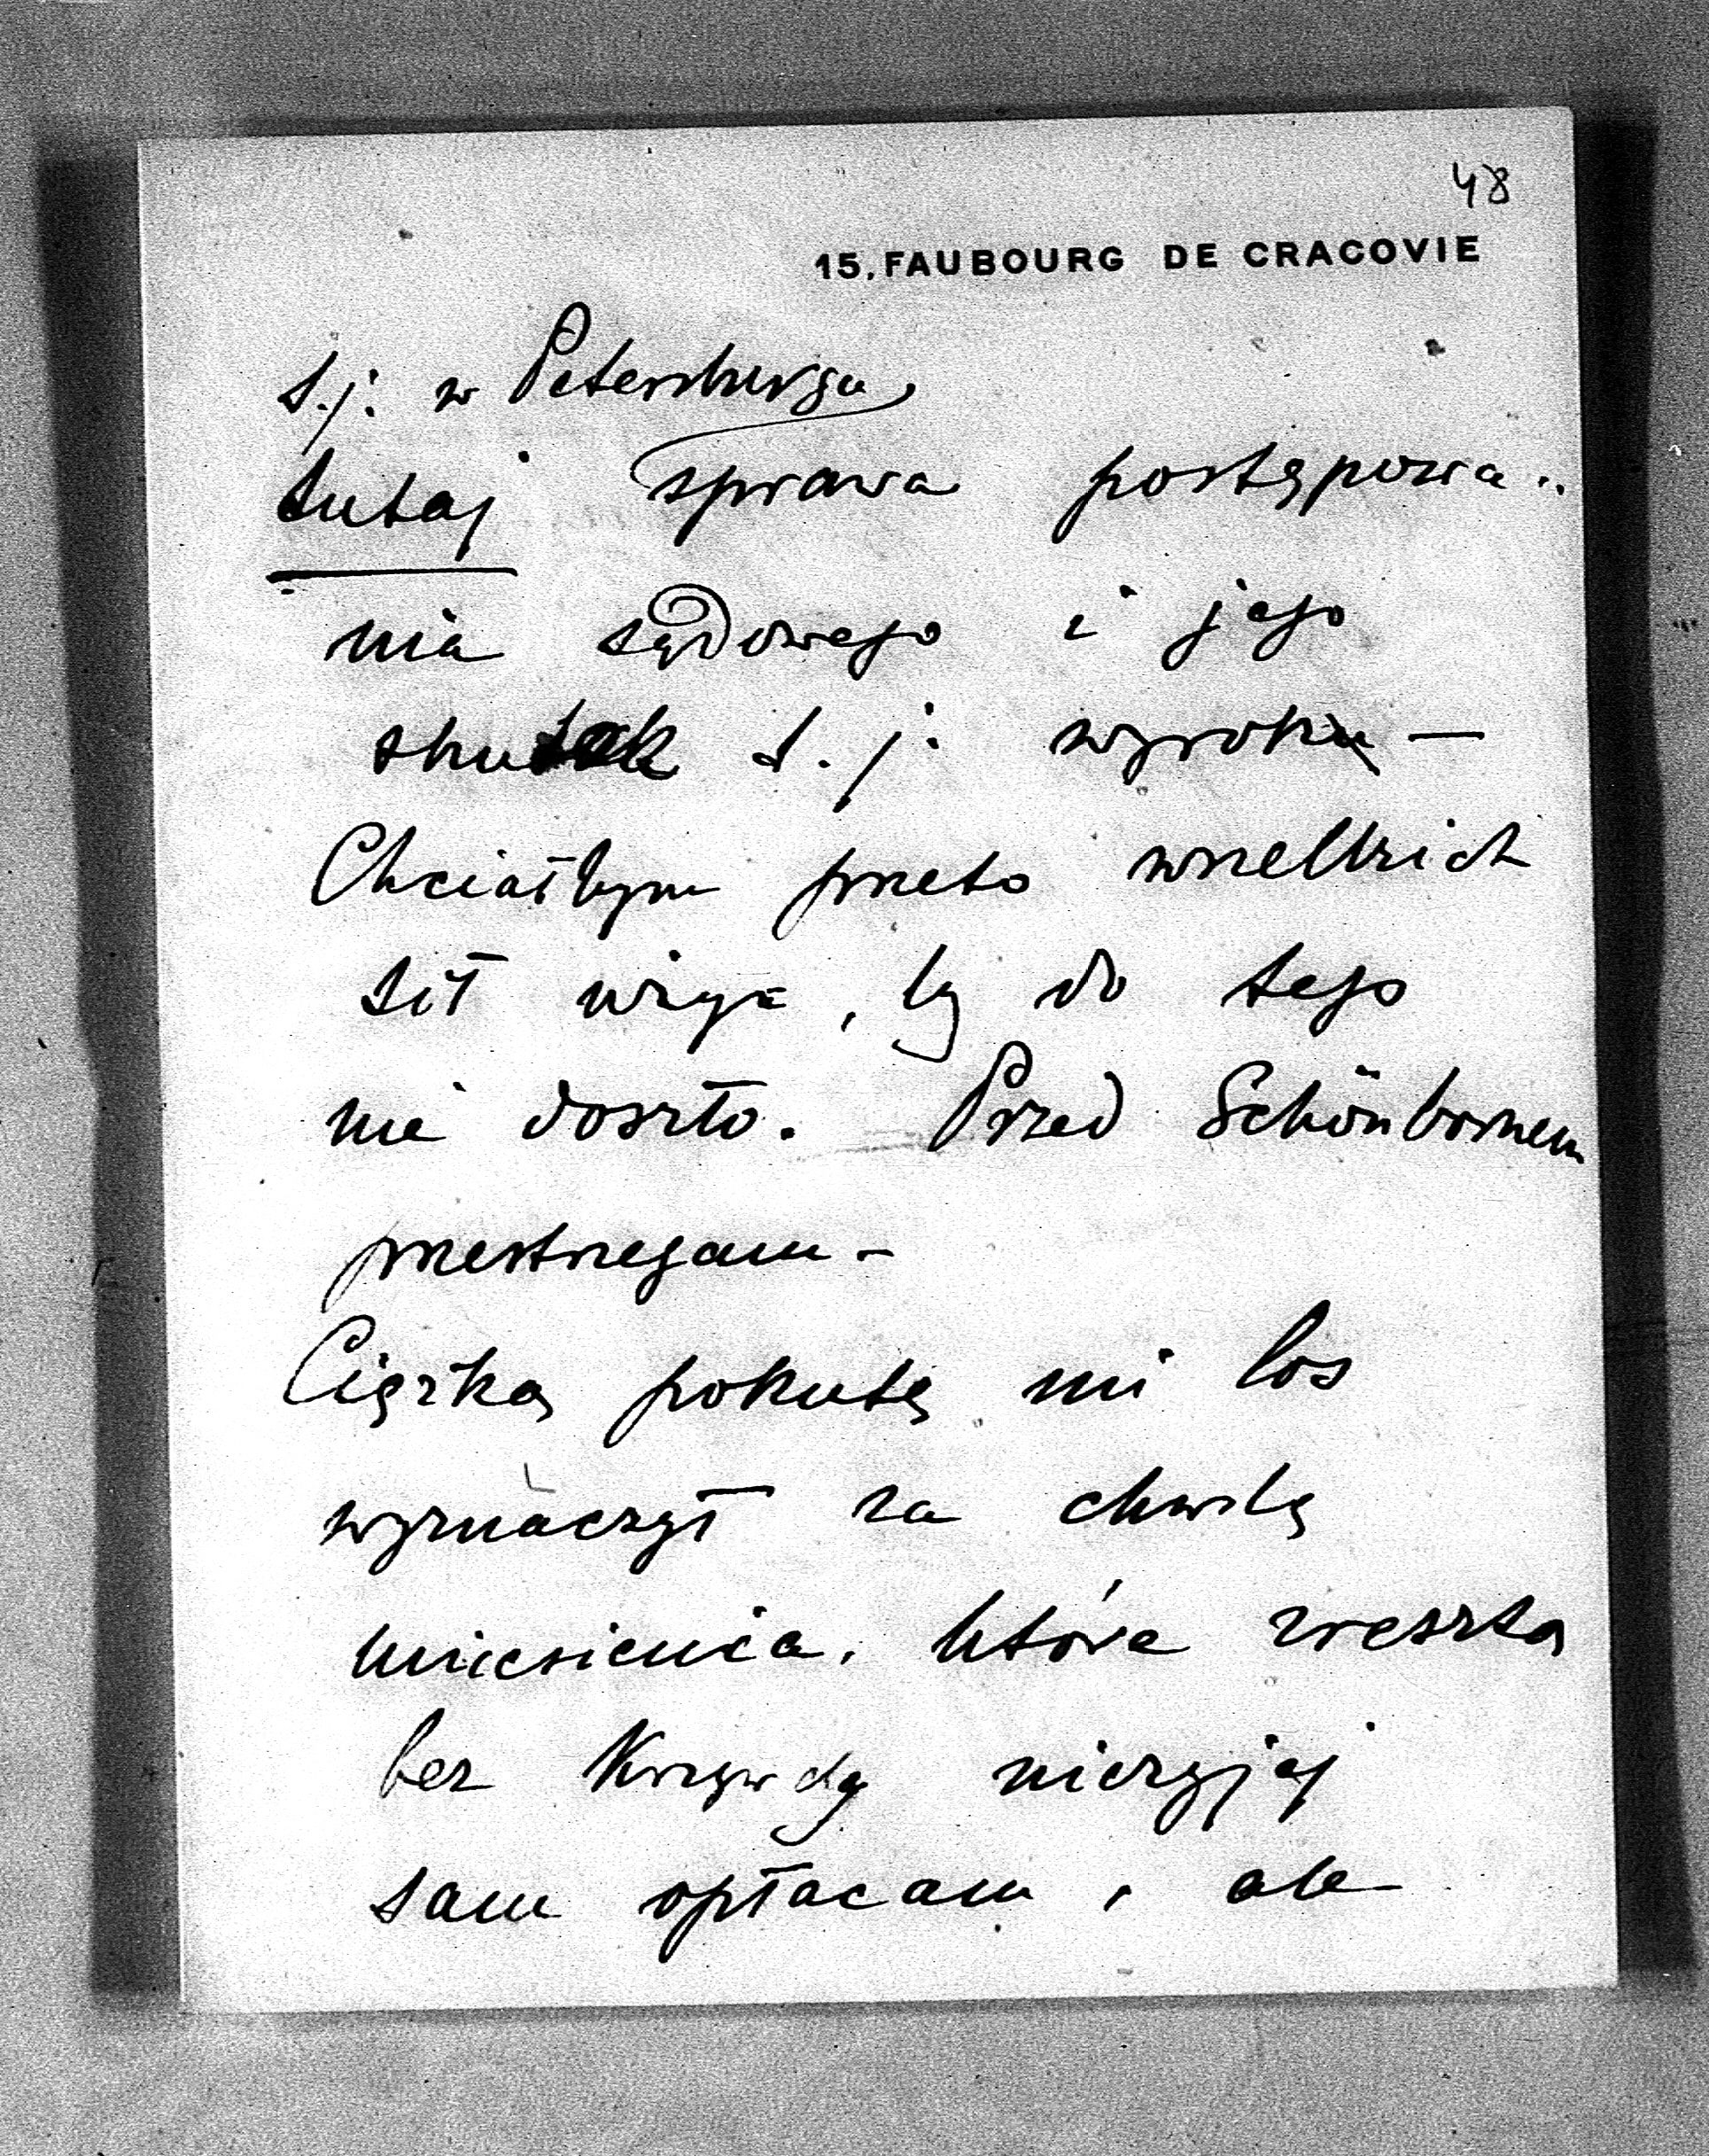 48
15. FAUBOURG DE CRACOVIE
t.j. w Petersburgu
tutaj sprawa postępowa-
nia sądowego i jego
skutek t.j. wyroku —
Chciałbym przeto wszelkich
sił użyć, by do tego
nie doszło. Przed Schönbornem
przestrzegam -
Ciężką pokutę mi los
wyznaczył za chwilę
uniesienia, które zresztą
bez krzywdy niczyjej
sam opłacam, ale